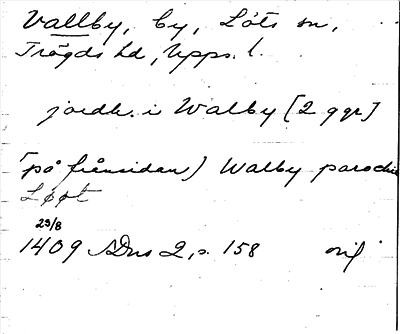 Vallby, by, Löts sn,
Trögds hd, Upps. l.
jordh. i Walby [2 ggr]
[på frånsidan) Walby parochie
Løøt
29/8
1409 SDns 2, s. 158 orig